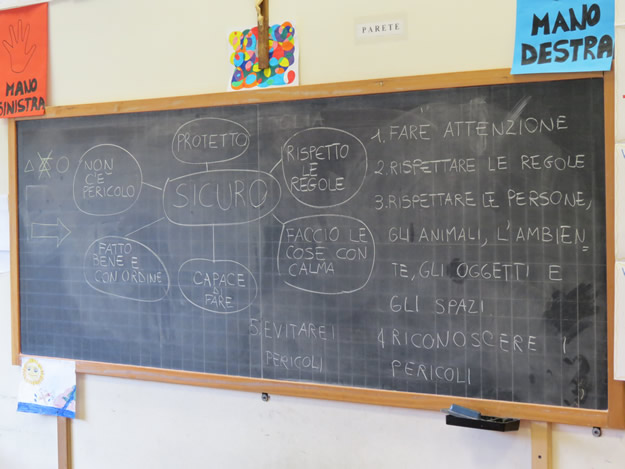 MANO
SINISTRA
PARETE
MANO
DESTRA
PROTETTO
NON
C'È
PERICOLO
SICURO
RISPETTO
LE
REGOLE
FATTO
BENE E
CON ORDINE
CAPACE
DI
FARE
FACCIO LE
COSE CON
CALMA
1. FARE ATTENZIONE
2. RISPETTARE LE REGOLE
3. RISPETTARE LE PERSONE,
GLI ANIMALI, L'AMBIEN=
TE, GLI OGGETTI E
GLI SPAZI
4. RICONOSCERE I
PERICOLI
5. EVITARE I
PERICOLI